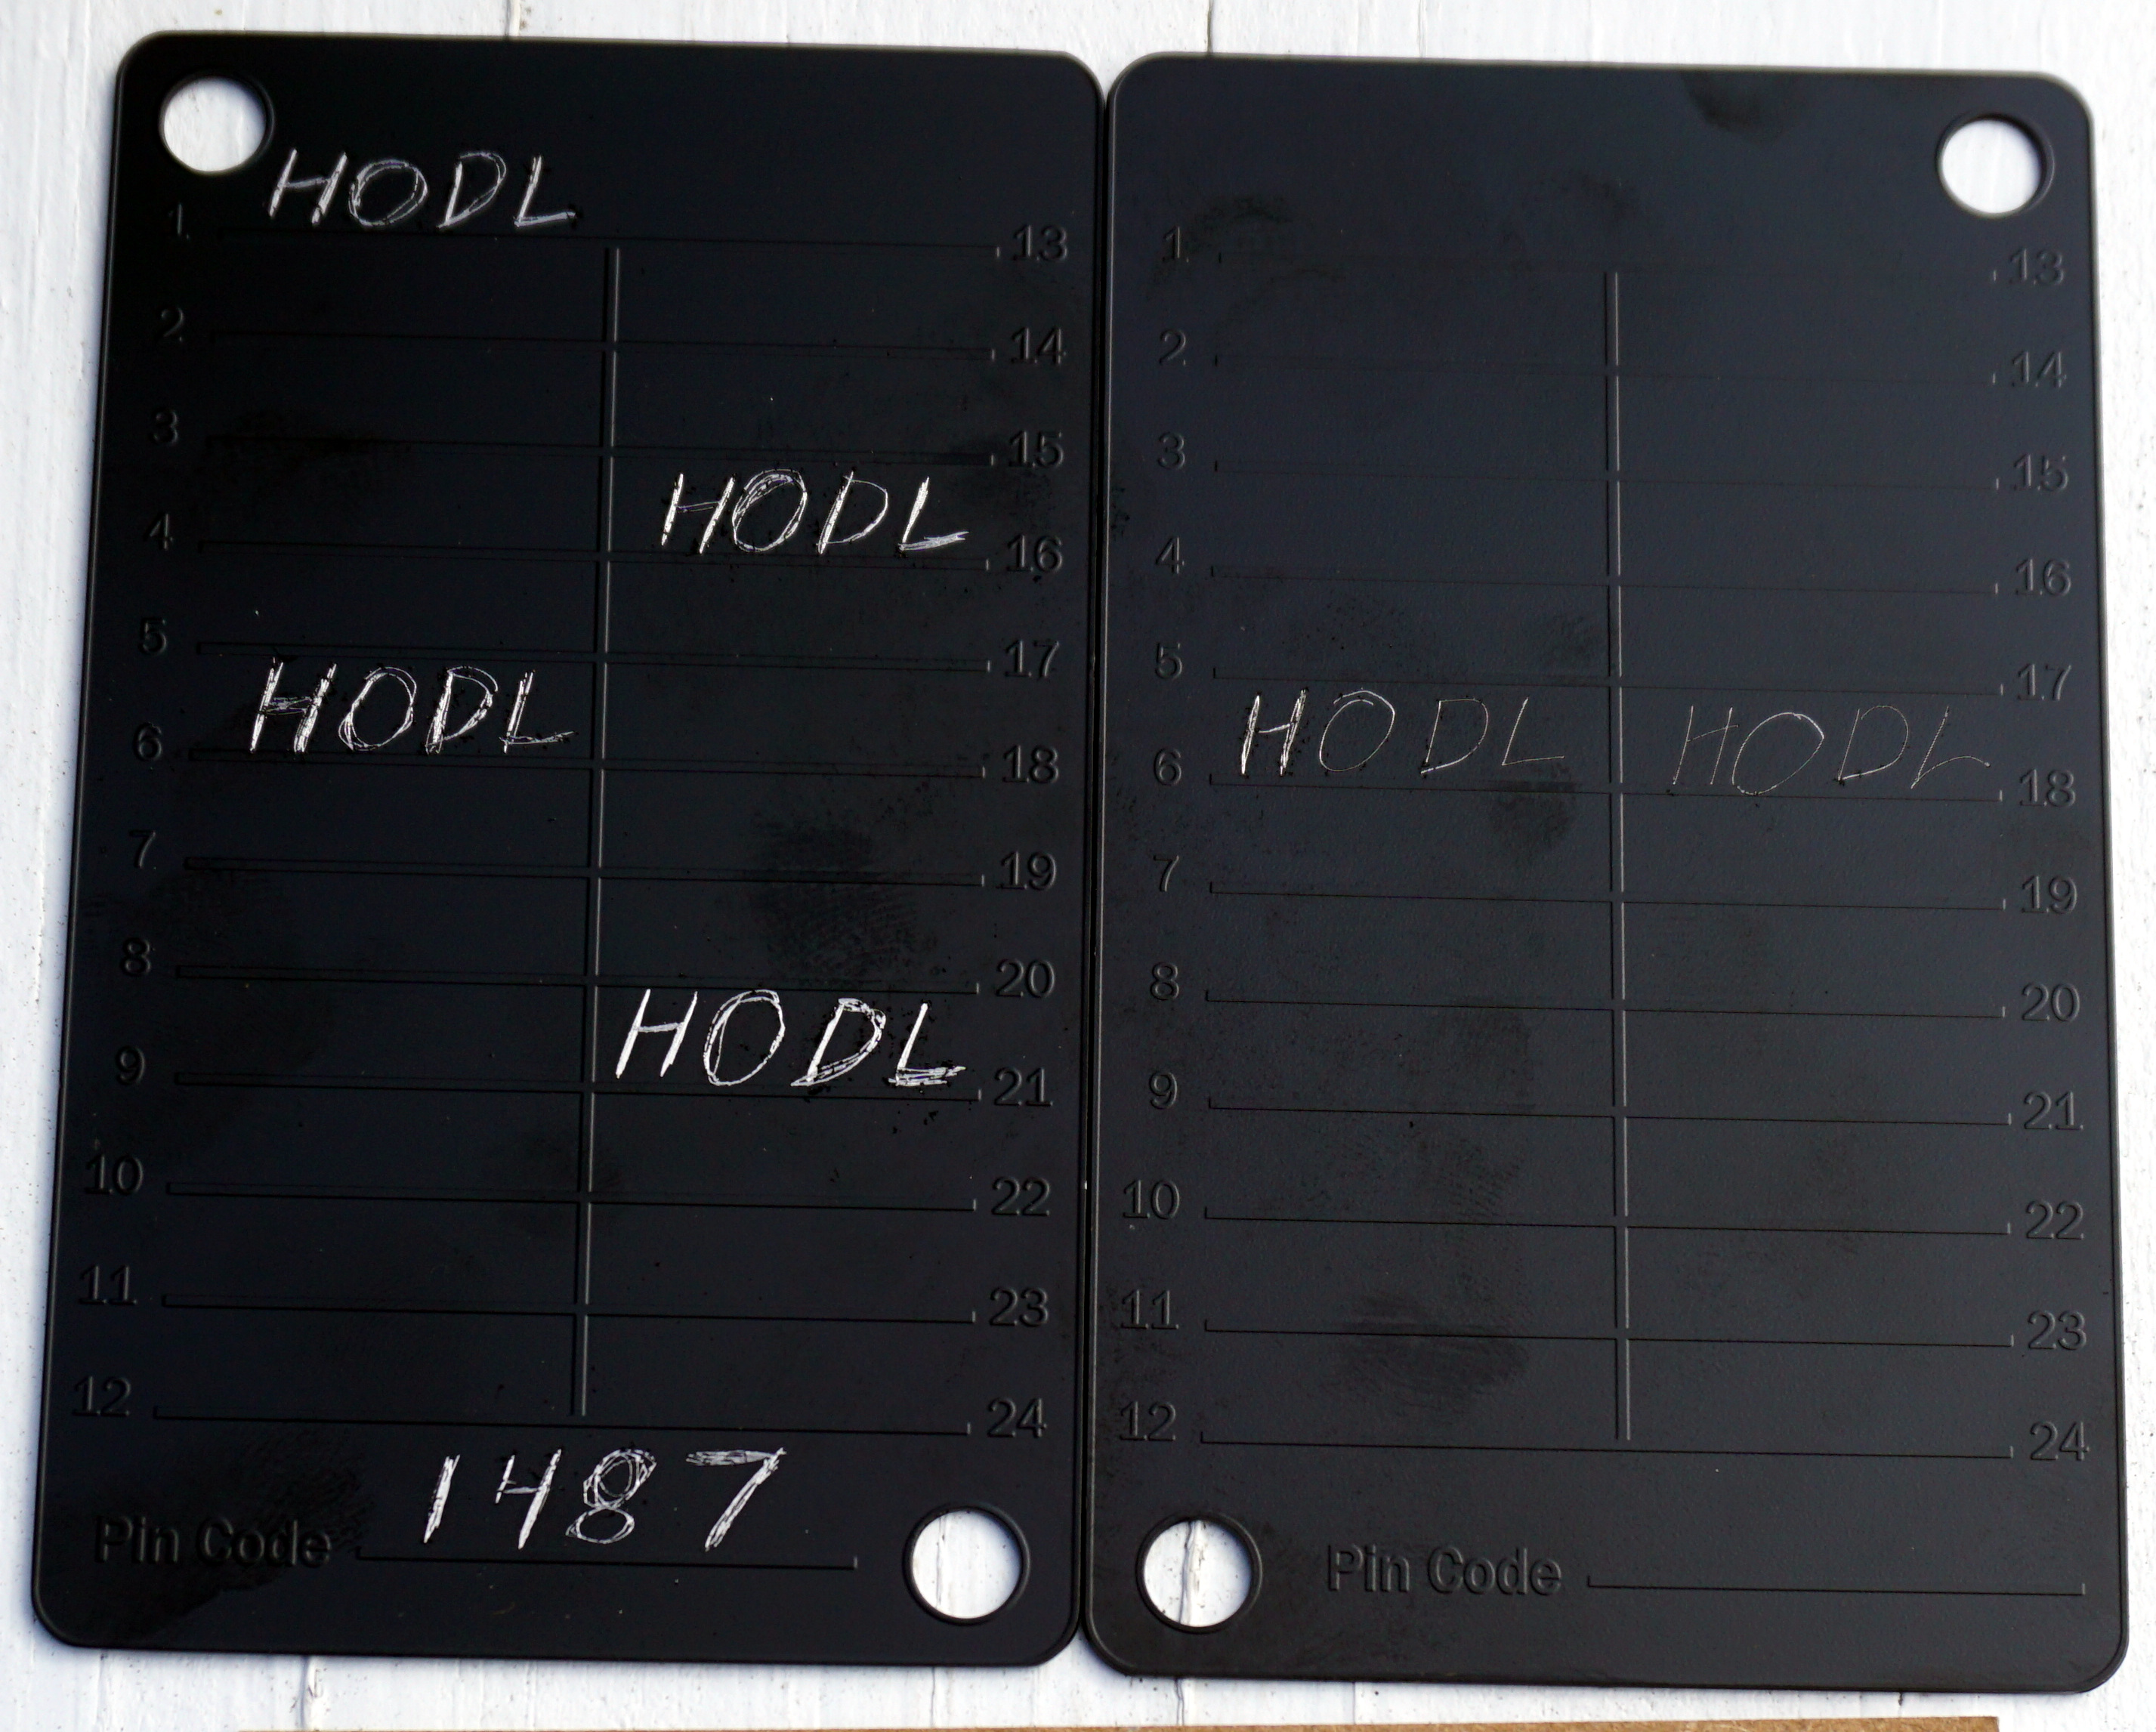 HODL
1 13
2 14
3 15
HODL
4 16
5 17
HODL
6 18
7 19
8 20
HODL
9 21
10 22
11 23
12 24
Pin Code 1487
1 13
2 14
3 15
4 16
5 17
HODL HODL
6 18
7 19
8 20
9 21
10 22
11 23
12 24
Pin Code